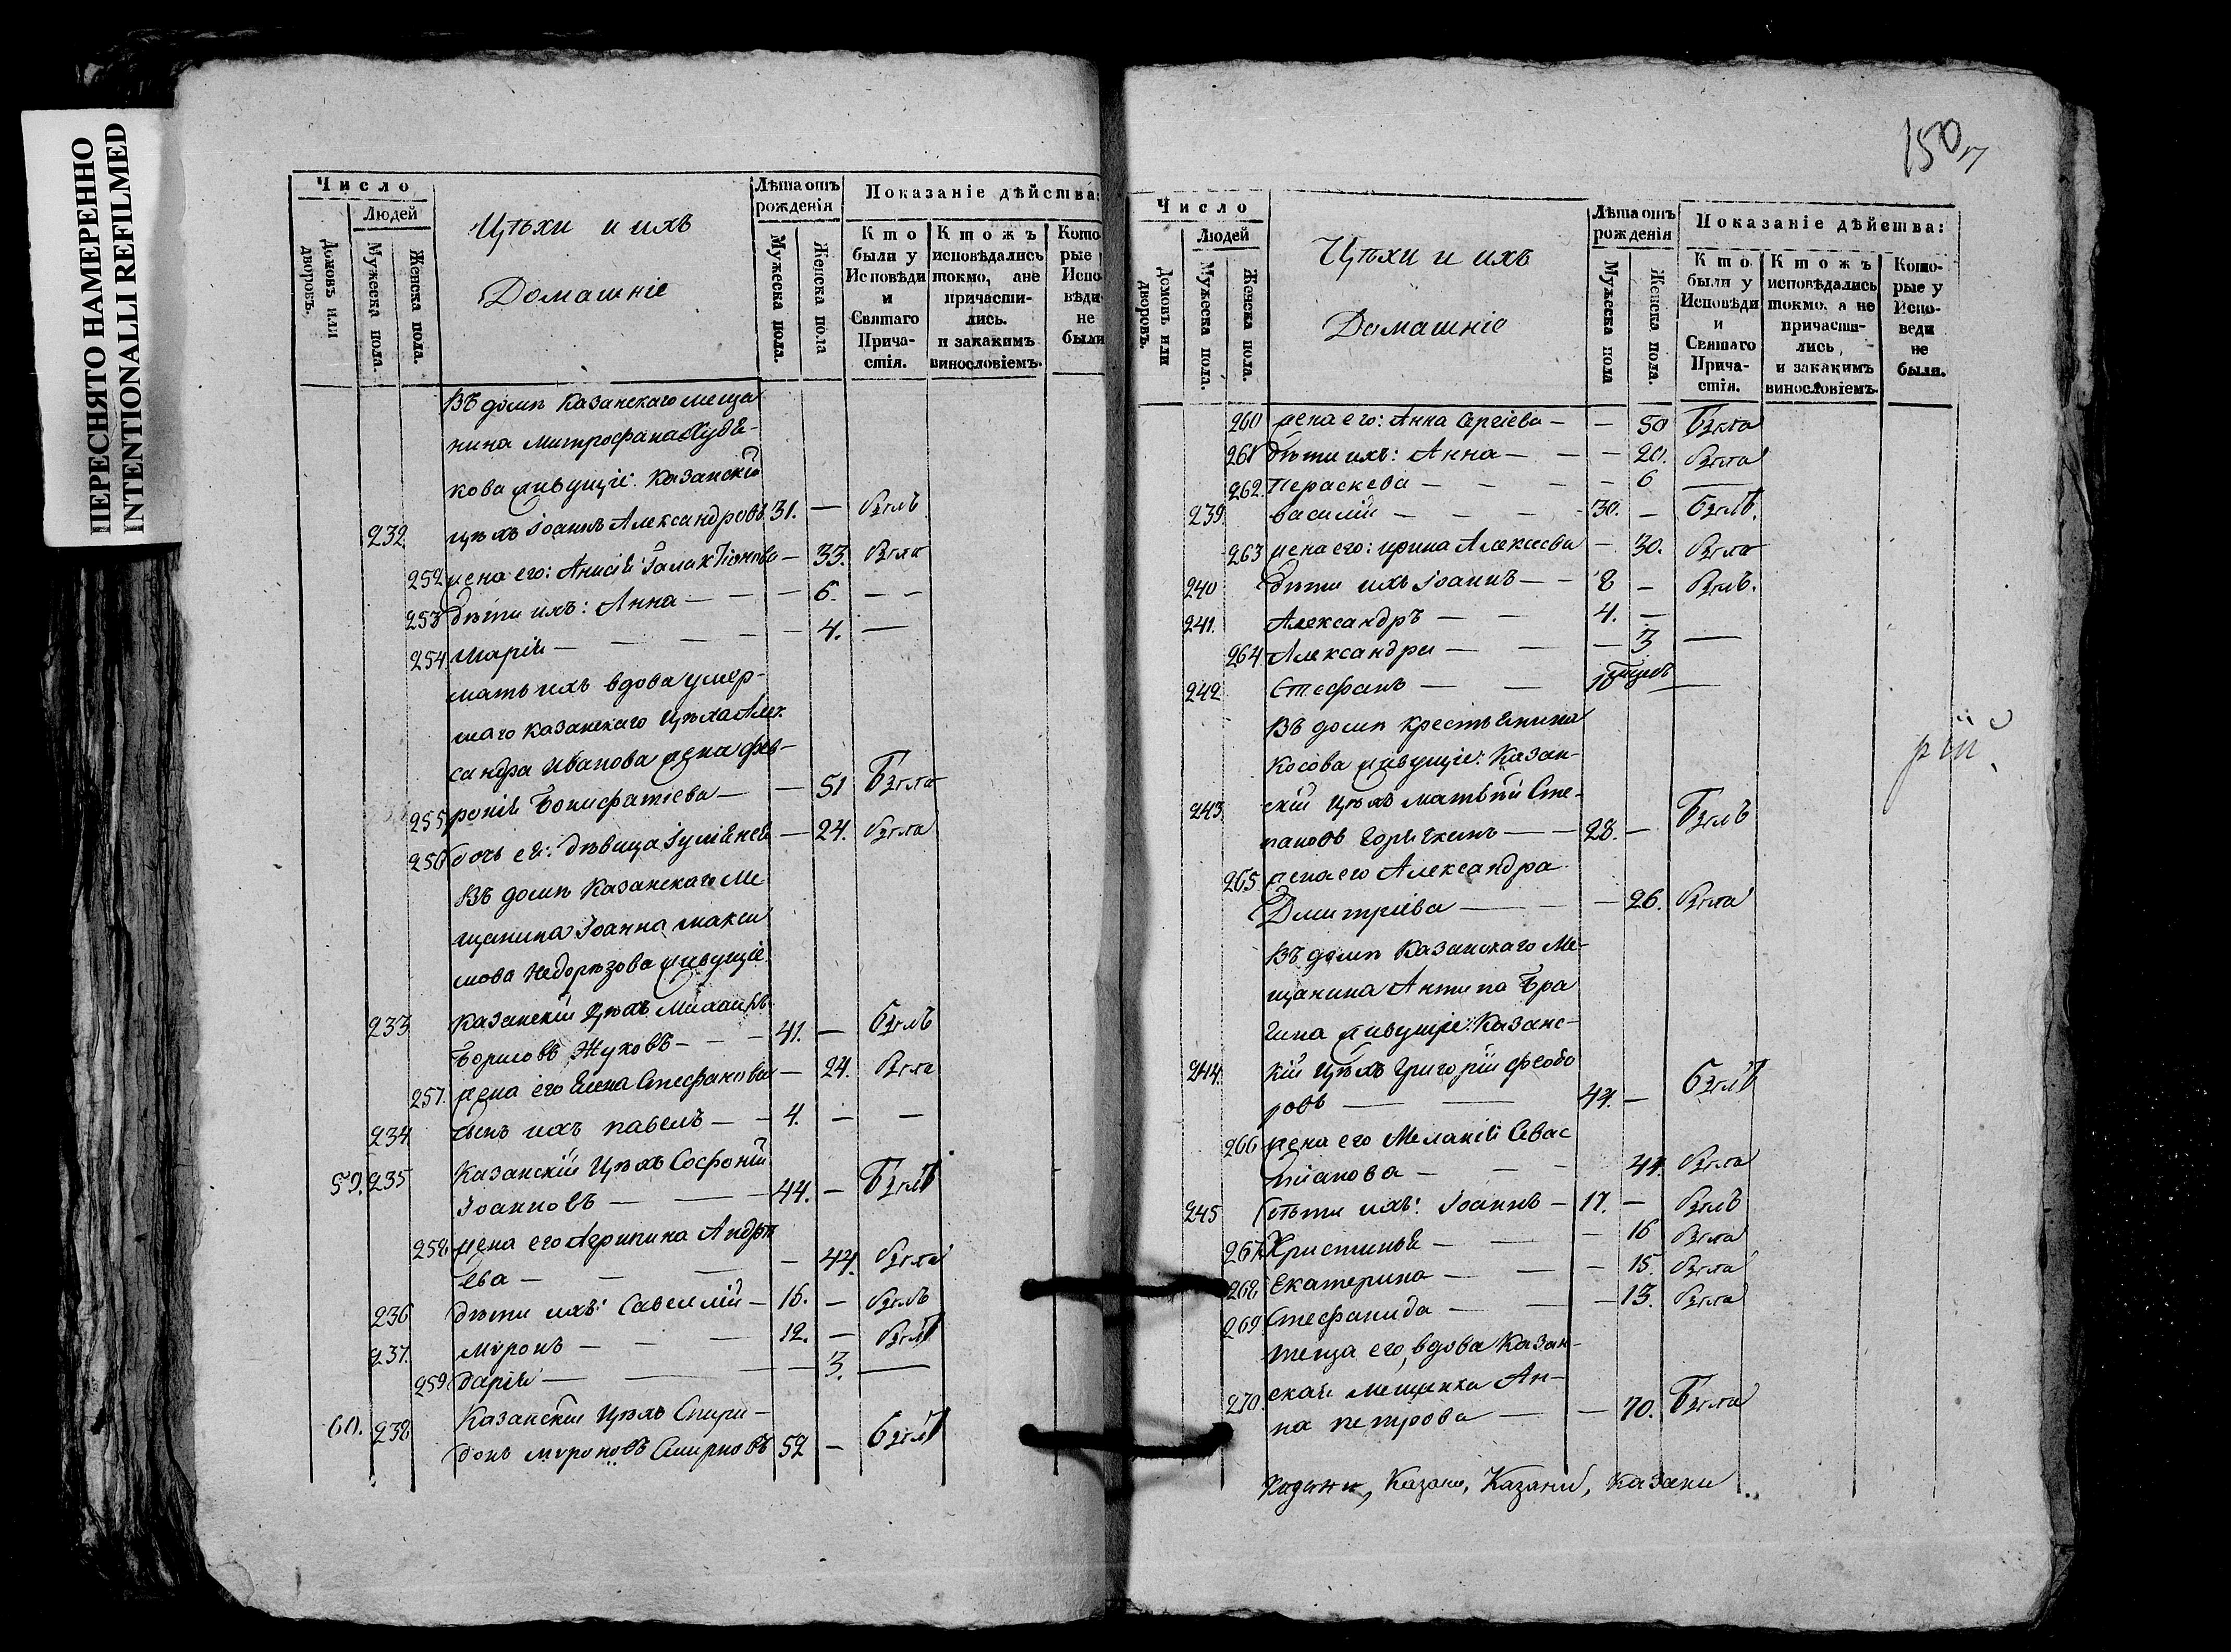 ПЕРЕСНЯТО НАМЕРЕННО
INTENTIONALLI REFILMED
Число
Людей
Домовъ или дворовъ.
Мужеска пола.
Женска пола.
Цѣхи и ихъ
Домашніе
Лѣта отъ рожденія
Мужеска пола.
Женска пола
Показаніе дѣйства:
Кто были у Исповѣди и Святаго Прича-стія.
Ктожъ исповѣдались токмо, ане причасти-лись. и закакимъ винословіемъ.
Кото рые Испо вѣди не были
Въ домѣ Казанскаго меща
нина Митрофана Худя-
кова живущіе: Казанскій
232 цѣхъ Іоаннъ Александровъ 31. — былъ
252 жена его: Анисія Галактіонова — 33. была
253 дѣти ихъ: Анна — — — 6. — —
254 Марія — — — — 4. —
мать ихъ вдова умер-
шаго казанскаго цѣха Алек
сандра Иванова жена Фев-
255 ронія Бонифатіева — — 51 Была
256 дочь ея: дѣвица Іуліанея — 24. была
Въ домѣ Казанскаго Ме
щанина Іоанна Макси
мова Недорѣзова живущіе
233 Казанскій Цѣхъ Михаилъ
Борисовъ Жуковъ — — — 41. — былъ
257. жена его Елена Стефанова — 24. была
234 сынъ ихъ Павелъ — — 4. — —
59. 235 Казанскій Цѣхъ Софоній
Іоанновъ — — — 44. — Былъ
258 жена его Агрипина Андрѣ
ева — — — — 44. была
236 дѣти ихъ: Савеллій — 16. — былъ
237. Мѵронъ — — 12. — былъ
259 Дарія — — — — 3. —
60. 238 Казанскій Цѣхъ Спири-
донъ Мѵроновъ Смирновъ 52 — былъ
150
Число
Людей
Домовъ или дворовъ.
Мужеска пола.
Женска пола.
Цѣхи и ихъ
Домашніе
Лѣта отъ рожденія
Мужеска пола
Женска пола.
Показаніе дѣйства:
Кто были у Исповѣди и Святаго Прича-стія.
Ктожъ исповѣдались токмо, а не причасти-лись, и закакимъ винословіемъ.
Кото-рые у Испо-веди не были.
260 жена его: Анна Сергіева — — 50 Была
261 дѣти ихъ: Анна — — — 20. была
262. Параскева — — — — 6 —
239. Василій — — — 30. — былъ.
263 жена его: Ирина Алексеева — 30. была
240 дѣти ихъ Іоаннъ — — 8 — былъ.
241. Александръ — — 4. — —
264 Александра — — — 3 —
242 Стефанъ — —
Въ домѣ крестьянина
Косова живущіе: Казан-
243. скій цѣхъ Матвѣй Сте-
пановъ Горячкинъ — — 28. — Былъ
265 жена его Александра
Дмитріева — — — 26. была
Въ домѣ Казанскаго Ме-
щанина Антипа Бра
гина живущіе: Казанс-
244. кій Цѣхъ Григорій Феодо
ровъ — — 44. — былъ
266 жена его Меланія Севас
тіанова — — — 41. была
245 дѣти ихъ: Іоаннъ — 17. — былъ
267. Христинья — — — 16 была
268 Екатерина — — — 15. была
269. Стефанида — — — 13. была
теща его, вдова Казан-
270. ская мещанка Ан-
на Петрова — — 70. Была
Казани, Казани, Казани